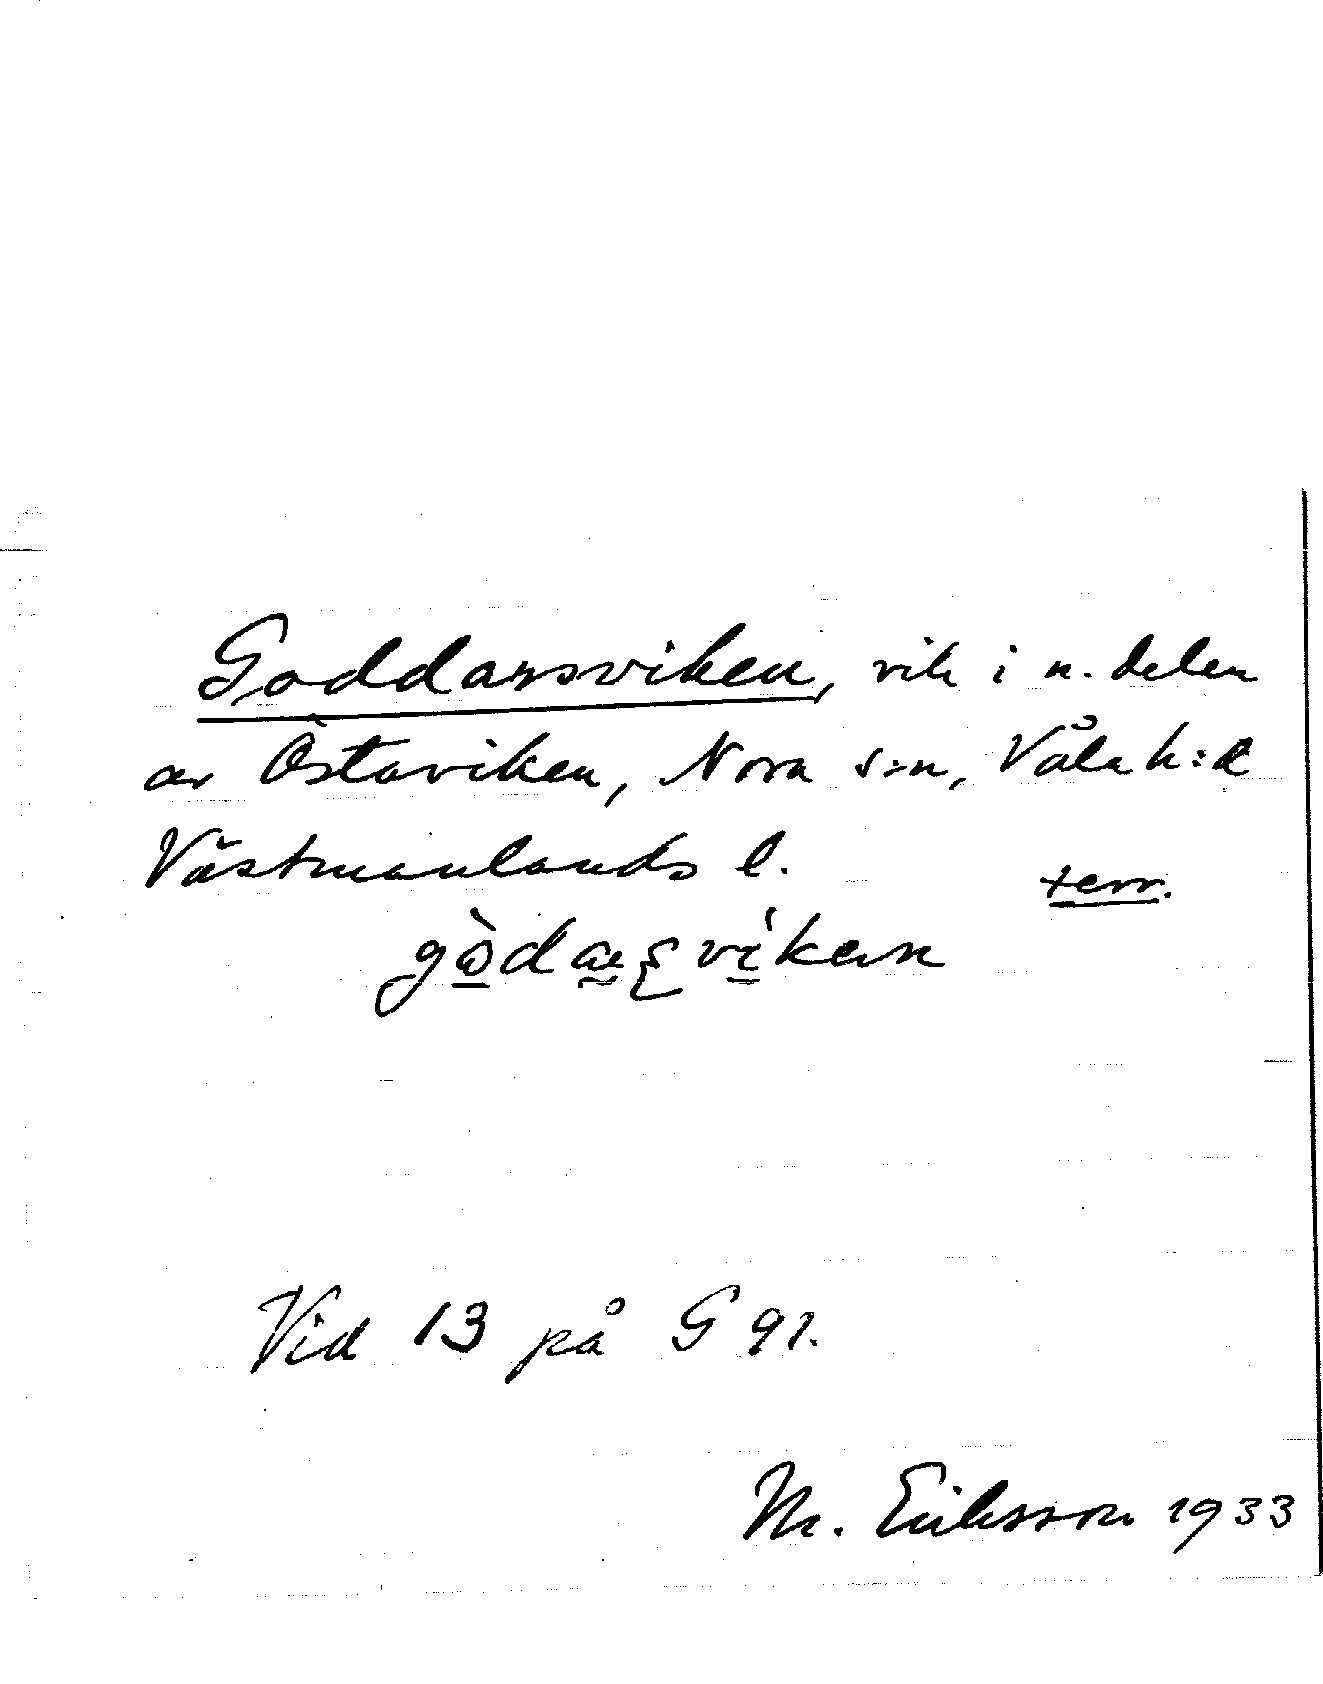 Goddarsviken, vik i n. delen
av Östaviken, Nora s:n, Våla h:d
Västmanlands l.
terr.
Vid 13 på G 91.
M. Eriksson 1933